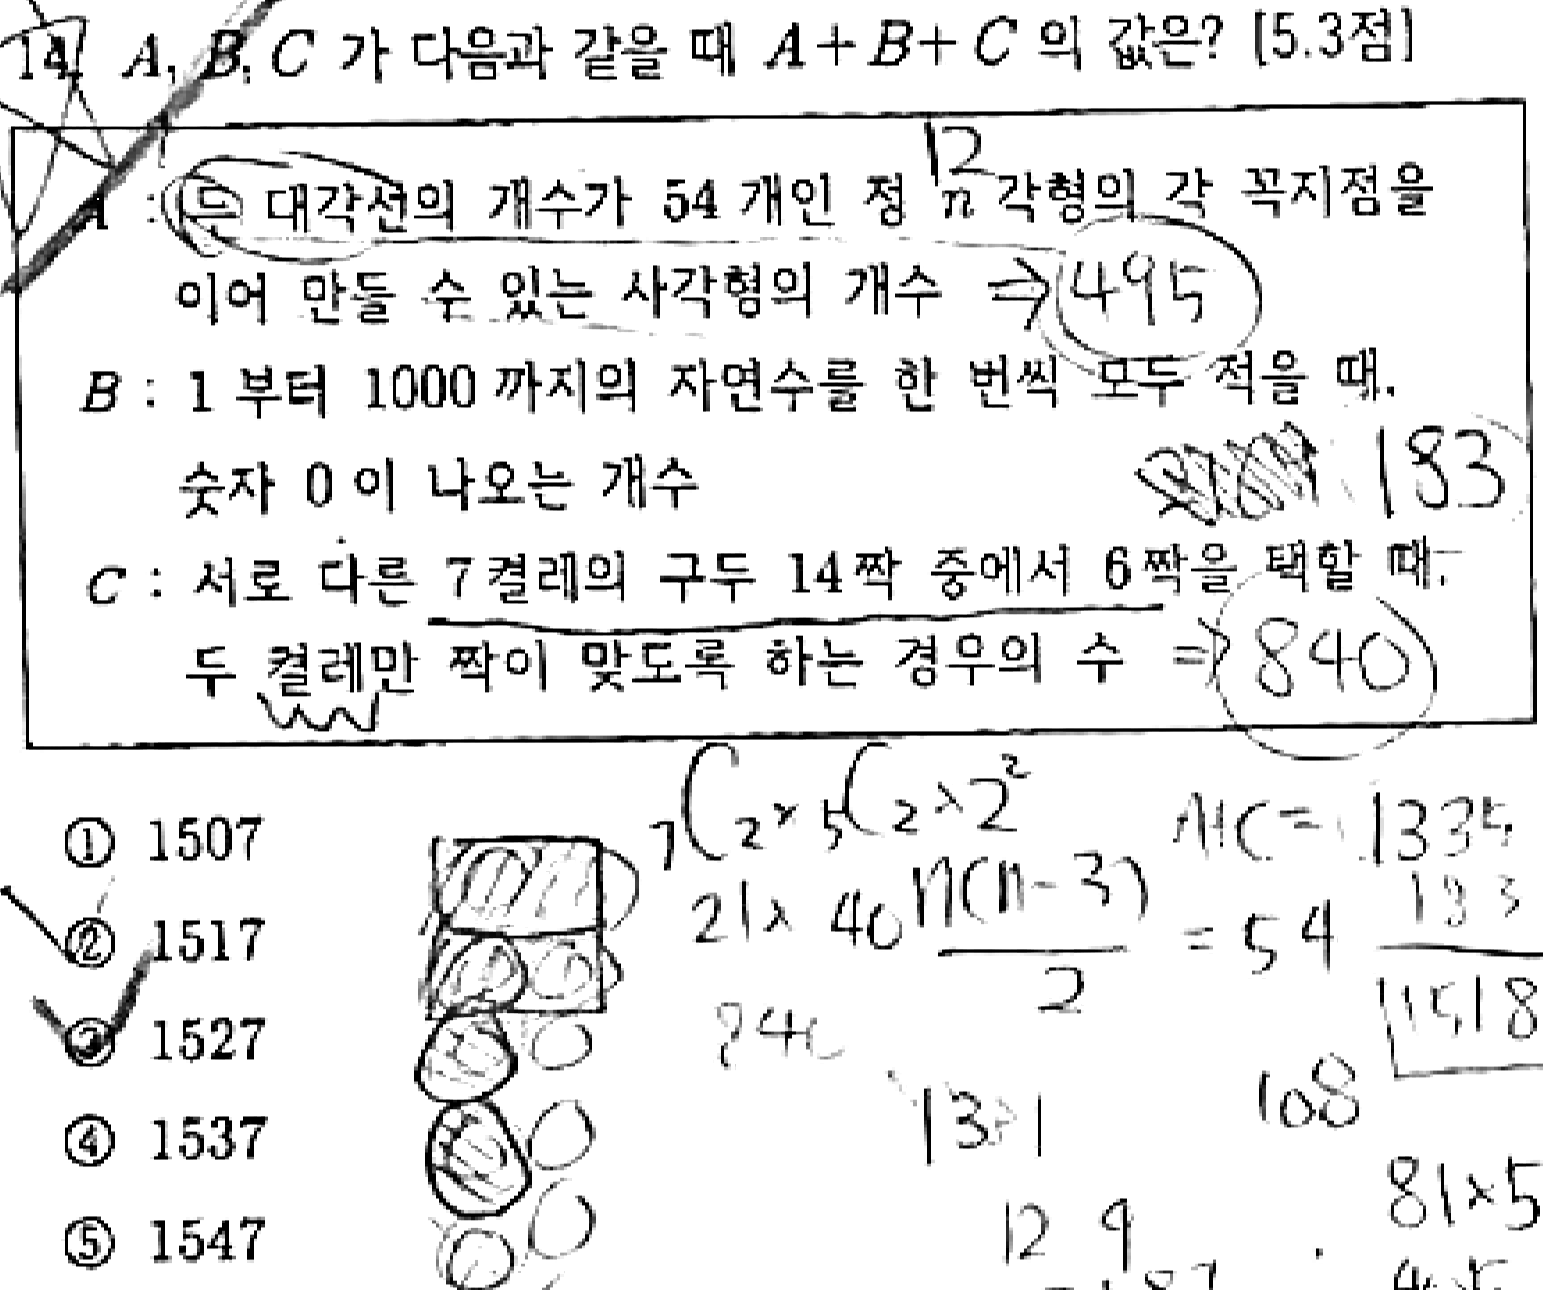 14. A, B, C 가 다음과 같을 때 A+B+C 의 값은? [5.3점]
12
A : 대각선의 개수가 54 개인 정 n 각형의 각 꼭지점을
이어 만들 수 있는 사각형의 개수 ⇒ 495
B : 1 부터 1000 까지의 자연수를 한 번씩 모두 적을 때,
숫자 0 이 나오는 개수 183
C : 서로 다른 7 켤레의 구두 14 짝 중에서 6 짝을 택할 때,
두 켤레만 짝이 맞도록 하는 경우의 수 ⇒ 840
① 1507
② 1517
③ 1527
④ 1537
⑤ 1547
₇C₂ × ₅C₂ × 2²
21 × 40
840
n(n-3)/2 = 54
A+C = 1335
183
1518
108
12 9
81×5